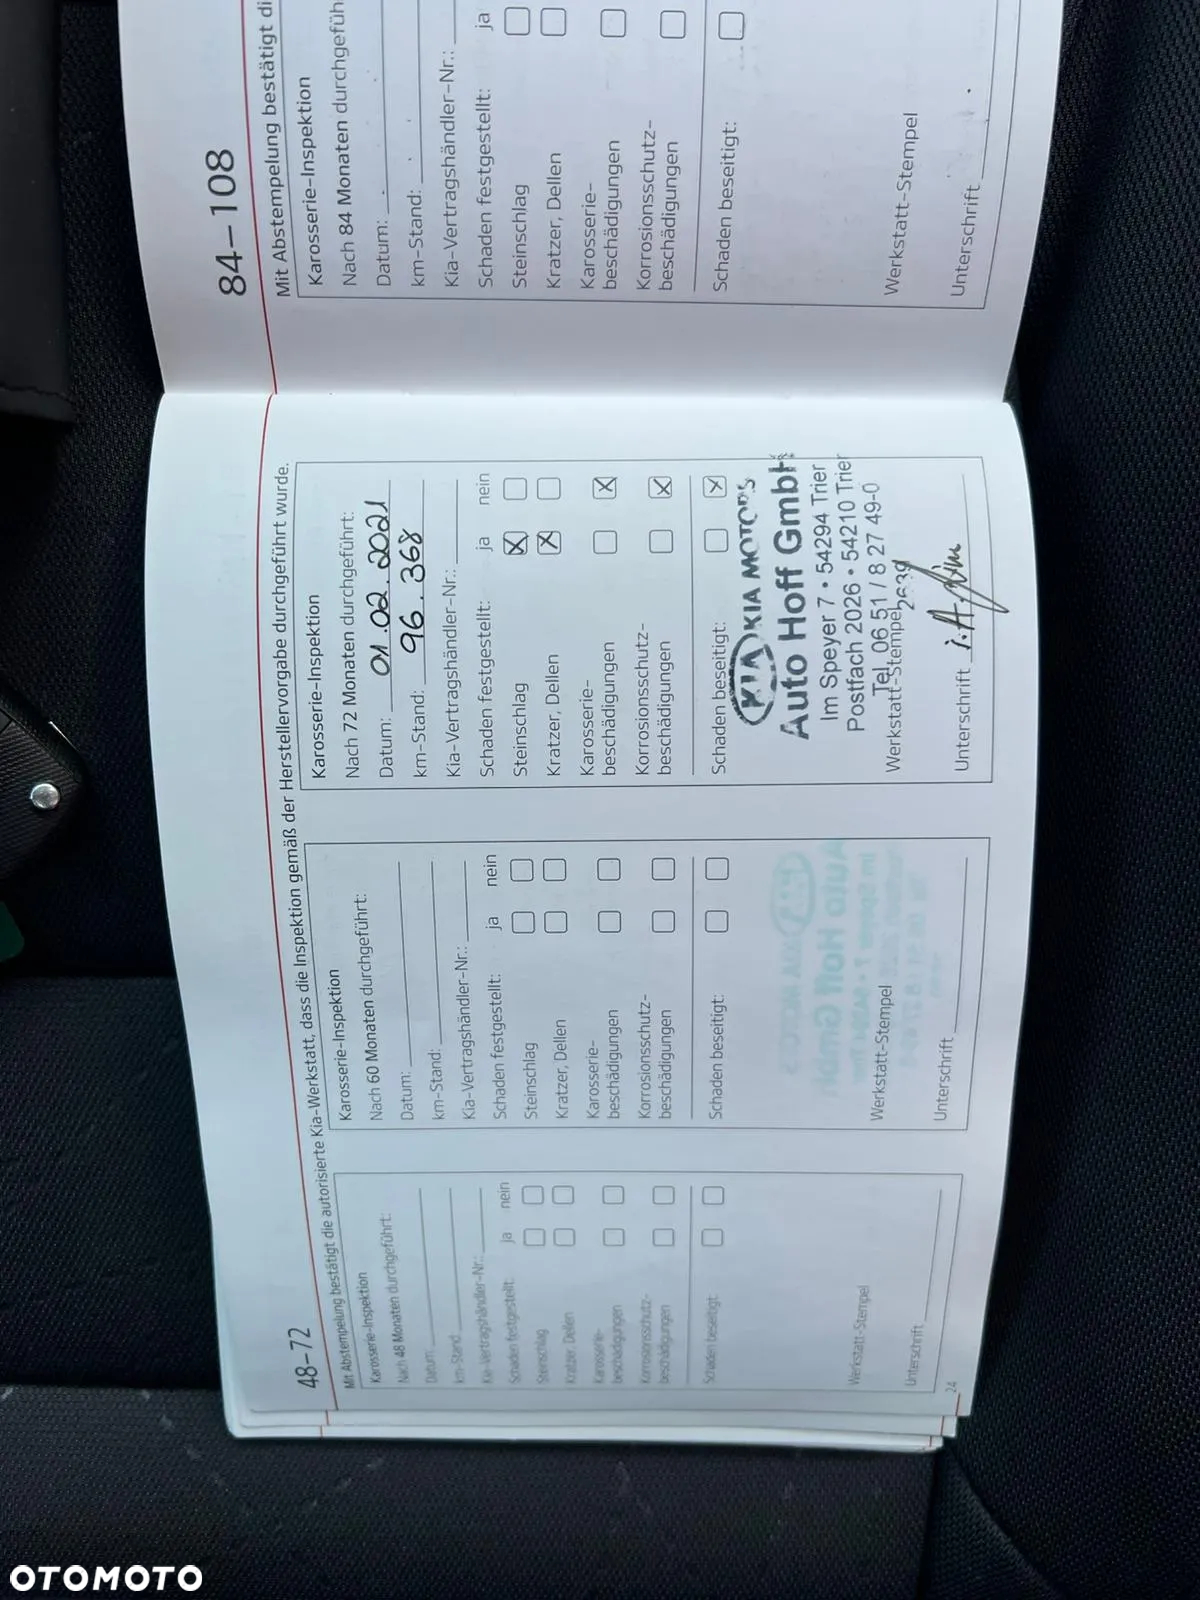 48–72
Mit Abstempelung bestätigt die autorisierte Kia-Werkstatt, dass die Inspektion gemäß der Herstellervorgabe durchgeführt wurde.
Karosserie-Inspektion
Nach 48 Monaten durchgeführt:
Datum:
km-Stand:
Kia-Vertragshändler-Nr.:
Schaden festgestellt: ja nein
Steinschlag
Kratzer, Dellen
Karosserie-
beschädigungen
Korrosionsschutz-
beschädigungen
Schaden beseitigt:
Werkstatt-Stempel
Unterschrift
24
Karosserie-Inspektion
Nach 60 Monaten durchgeführt:
Datum:
km-Stand:
Kia-Vertragshändler-Nr.:
Schaden festgestellt: ja nein
Steinschlag
Kratzer, Dellen
Karosserie-
beschädigungen
Korrosionsschutz-
beschädigungen
Schaden beseitigt:
Werkstatt-Stempel
Unterschrift
Karosserie-Inspektion
Nach 72 Monaten durchgeführt:
Datum: 01.02.2021
km-Stand: 96.368
Kia-Vertragshändler-Nr.:
Schaden festgestellt: ja nein
Steinschlag X
Kratzer, Dellen X
Karosserie-
beschädigungen X
Korrosionsschutz-
beschädigungen X
Schaden beseitigt: X
KIA KIA MOTORS
Auto Hoff GmbH
Im Speyer 7 • 54294 Trier
Postfach 2026 • 54210 Trier
Tel. 06 51 / 8 27 49-0
Werkstatt-Stempel 2639
Unterschrift i.A.
84–108
Mit Abstempelung bestätigt di
Karosserie-Inspektion
Nach 84 Monaten durchgeführ
Datum:
km-Stand:
Kia-Vertragshändler-Nr.:
Schaden festgestellt: ja
Steinschlag
Kratzer, Dellen
Karosserie-
beschädigungen
Korrosionsschutz-
beschädigungen
Schaden beseitigt:
Werkstatt-Stempel
Unterschrift
OTOMOTO